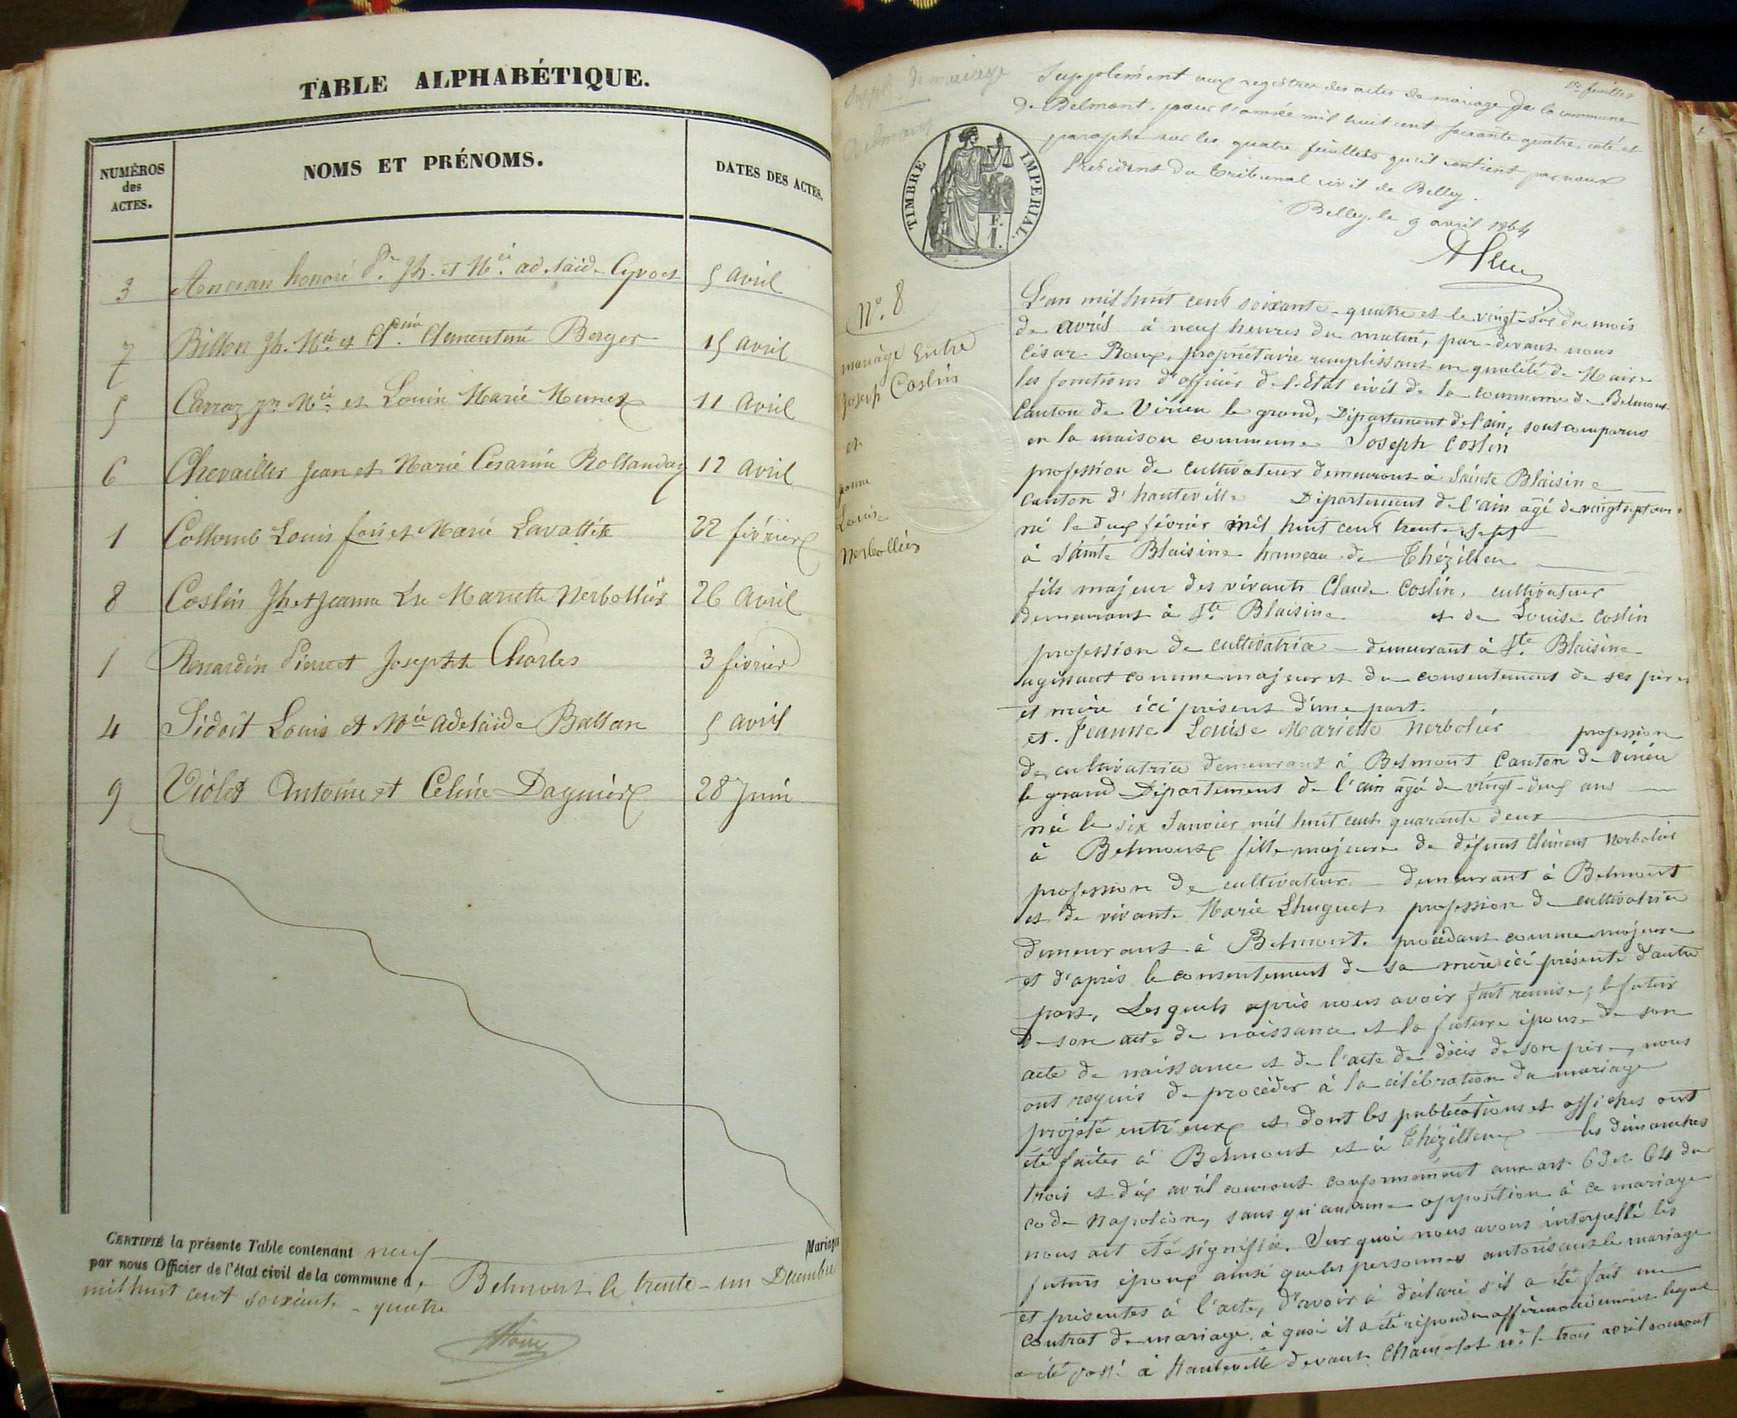 TABLE ALPHABÉTIQUE.
NUMÉROS des ACTES.
NOMS ET PRÉNOMS.
DATES DES ACTES.
3 honoré et adelaide 5 avril
7 Billon Jh. Mie et Clementine Berger 15 avril
5 Carraz et Louise Marie 11 avril
6 Chevailler Jean et Marie Cesarine Rollandaz 12 avril
1 Collomb Louis et Marie Lavallète 22 février
8 Coslin Jh et Jeanne Lse Mariette Nerbollier 26 avril
1 Renardin Pierre et Josephte Charles 3 février
4 Sidoit Louis et Mie adelaide Ballan 5 avril
9 Violet Antoine et Celine 28 Juin
Mariages
CERTIFIÉ la présente Table contenant neuf
par nous Officier de l'état civil de la commune de Belmont le trente-un Decembre
mil huit cent soixante-quatre
Suppl. de mariage
Belmont
Supplément aux registres des actes de mariage de la commune
de Belmont, pour l'année mil huit cent soixante quatre, coté et
paraphé sur les quatre feuillets qu'il contient par nous
Président du Tribunal civil de Belley.
Belley, le 9 avril 1864
TIMBRE IMPERIAL.
F.
1.
No. 8
mariage Entre
Joseph Coslin
et
Jeanne
Louise
Nerbollier
L'an mil huit cent soixante-quatre et le vingt-six du mois
de avril à neuf heures du matin, par-devant nous
César Roux, propriétaire remplissant en qualité de Maire
les fonctions d'officier de l'Etat civil de la commune de Belmont
Canton de Virieu le grand, Département de l'ain, sont comparus
en la maison commune Joseph Coslin
profession de cultivateur demeurant à Sainte Blaisine
canton d'hauteville Département de l'ain agé de vingt sept ans
né le deux février mil huit cent trente-sept
à Sainte Blaisine hameau de Thézillieu
fils majeur des vivants Claude Coslin, cultivateur
demeurant à Ste Blaisine et de Louise Coslin
profession de cultivatrice demeurant à Ste Blaisine
agissant comme majeur et du consentement de ses père
et mère ici présents d'une part.
et Jeanne Louise Mariette Nerbolier profession
de cultivatrice demeurant à Belmont Canton de Virieu
le grand Département de l'ain agé de vingt-deux ans
née le six Janvier mil huit cent quarante deux
à Belmont fille majeure de défunt Clément Nerbolier
profession de cultivateur demeurant à Belmont
et de vivante Marie Lhuguet, profession de cultivatrice
demeurant à Belmont. procédant comme majeure
et d'après le consentement de sa mère ici présente d'autre
part, Lesquels après nous avoir fait remise, le futur
de son acte de naissance et la future épouse de son
acte de naissance et de l'acte de décès de son père, nous
ont requis de procéder à la célébration du mariage
projeté entr'eux et dont les publications et affiches ont
été faites à Belmont et à Thézillieu les dimanches
trois et dix avril courant conformément aux art. 63 et 64 du
code Napoléon, sans qu'aucune opposition à ce mariage
nous ait été signifiée. Sur quoi nous avons interpellé les
futurs époux ainsi que les personnes autorisant le mariage
et présentes à l'acte, d'avoir à déclarer s'il a été fait un
contrat de mariage, à quoi il a été répondu affirmativement lequel
a été passé à Hauteville devant Chamelot no. le trois avril courant